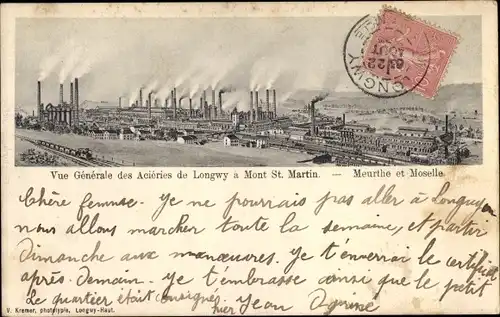 LONGWY
22
AOUT
Vue Générale des Aciéries de Longwy à Mont St. Martin. — Meurthe et Moselle.
Chère femme. Je ne pourrais pas aller à Longuyon
nous allons marcher toute la semaine, et partir
Dimanche aux manœuvres. Je t'enverrai le certificat
après-Demain. Je t'embrasse ainsi que le petit
Le quartier était consigné Jean
hier
V. Kremer, phototypie, Longwy-Haut.